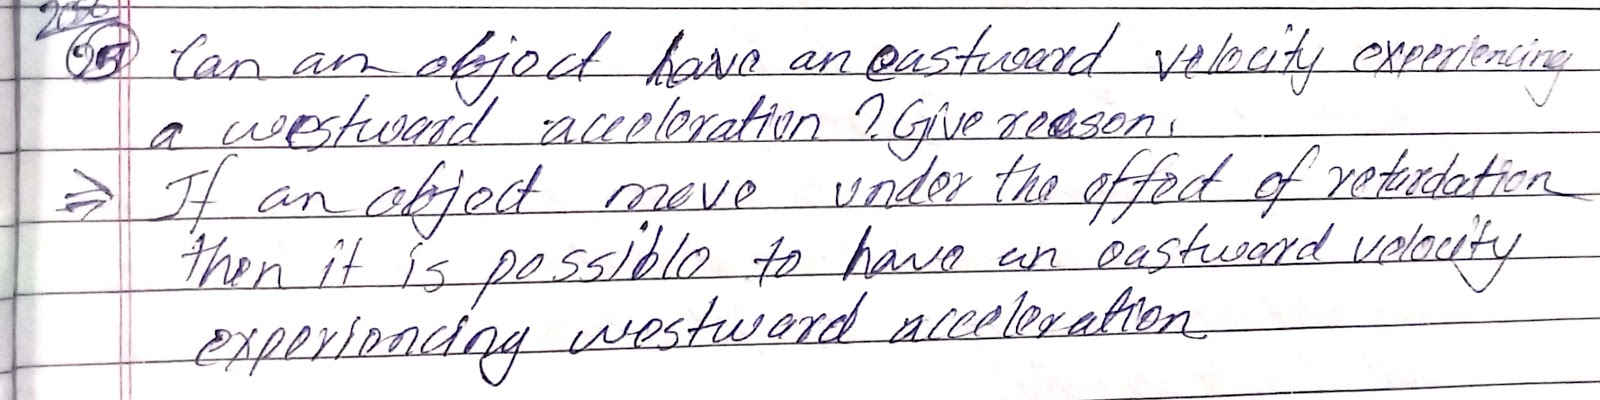 2056
Can an object have an eastward velocity experiencing
a westward acceleration ? Give reason.
⇒ If an object move under the effect of retardation
then it is possible to have an eastward velocity
experiencing westward acceleration